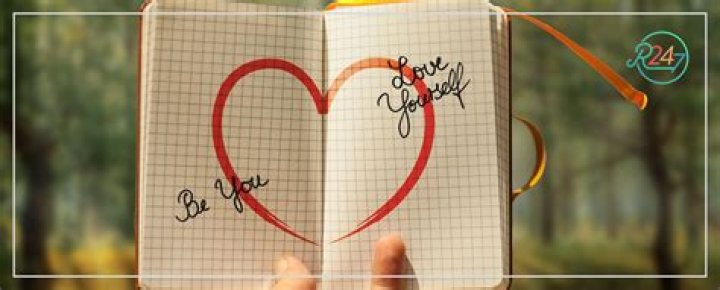 Be You
Love
Yourself
R247